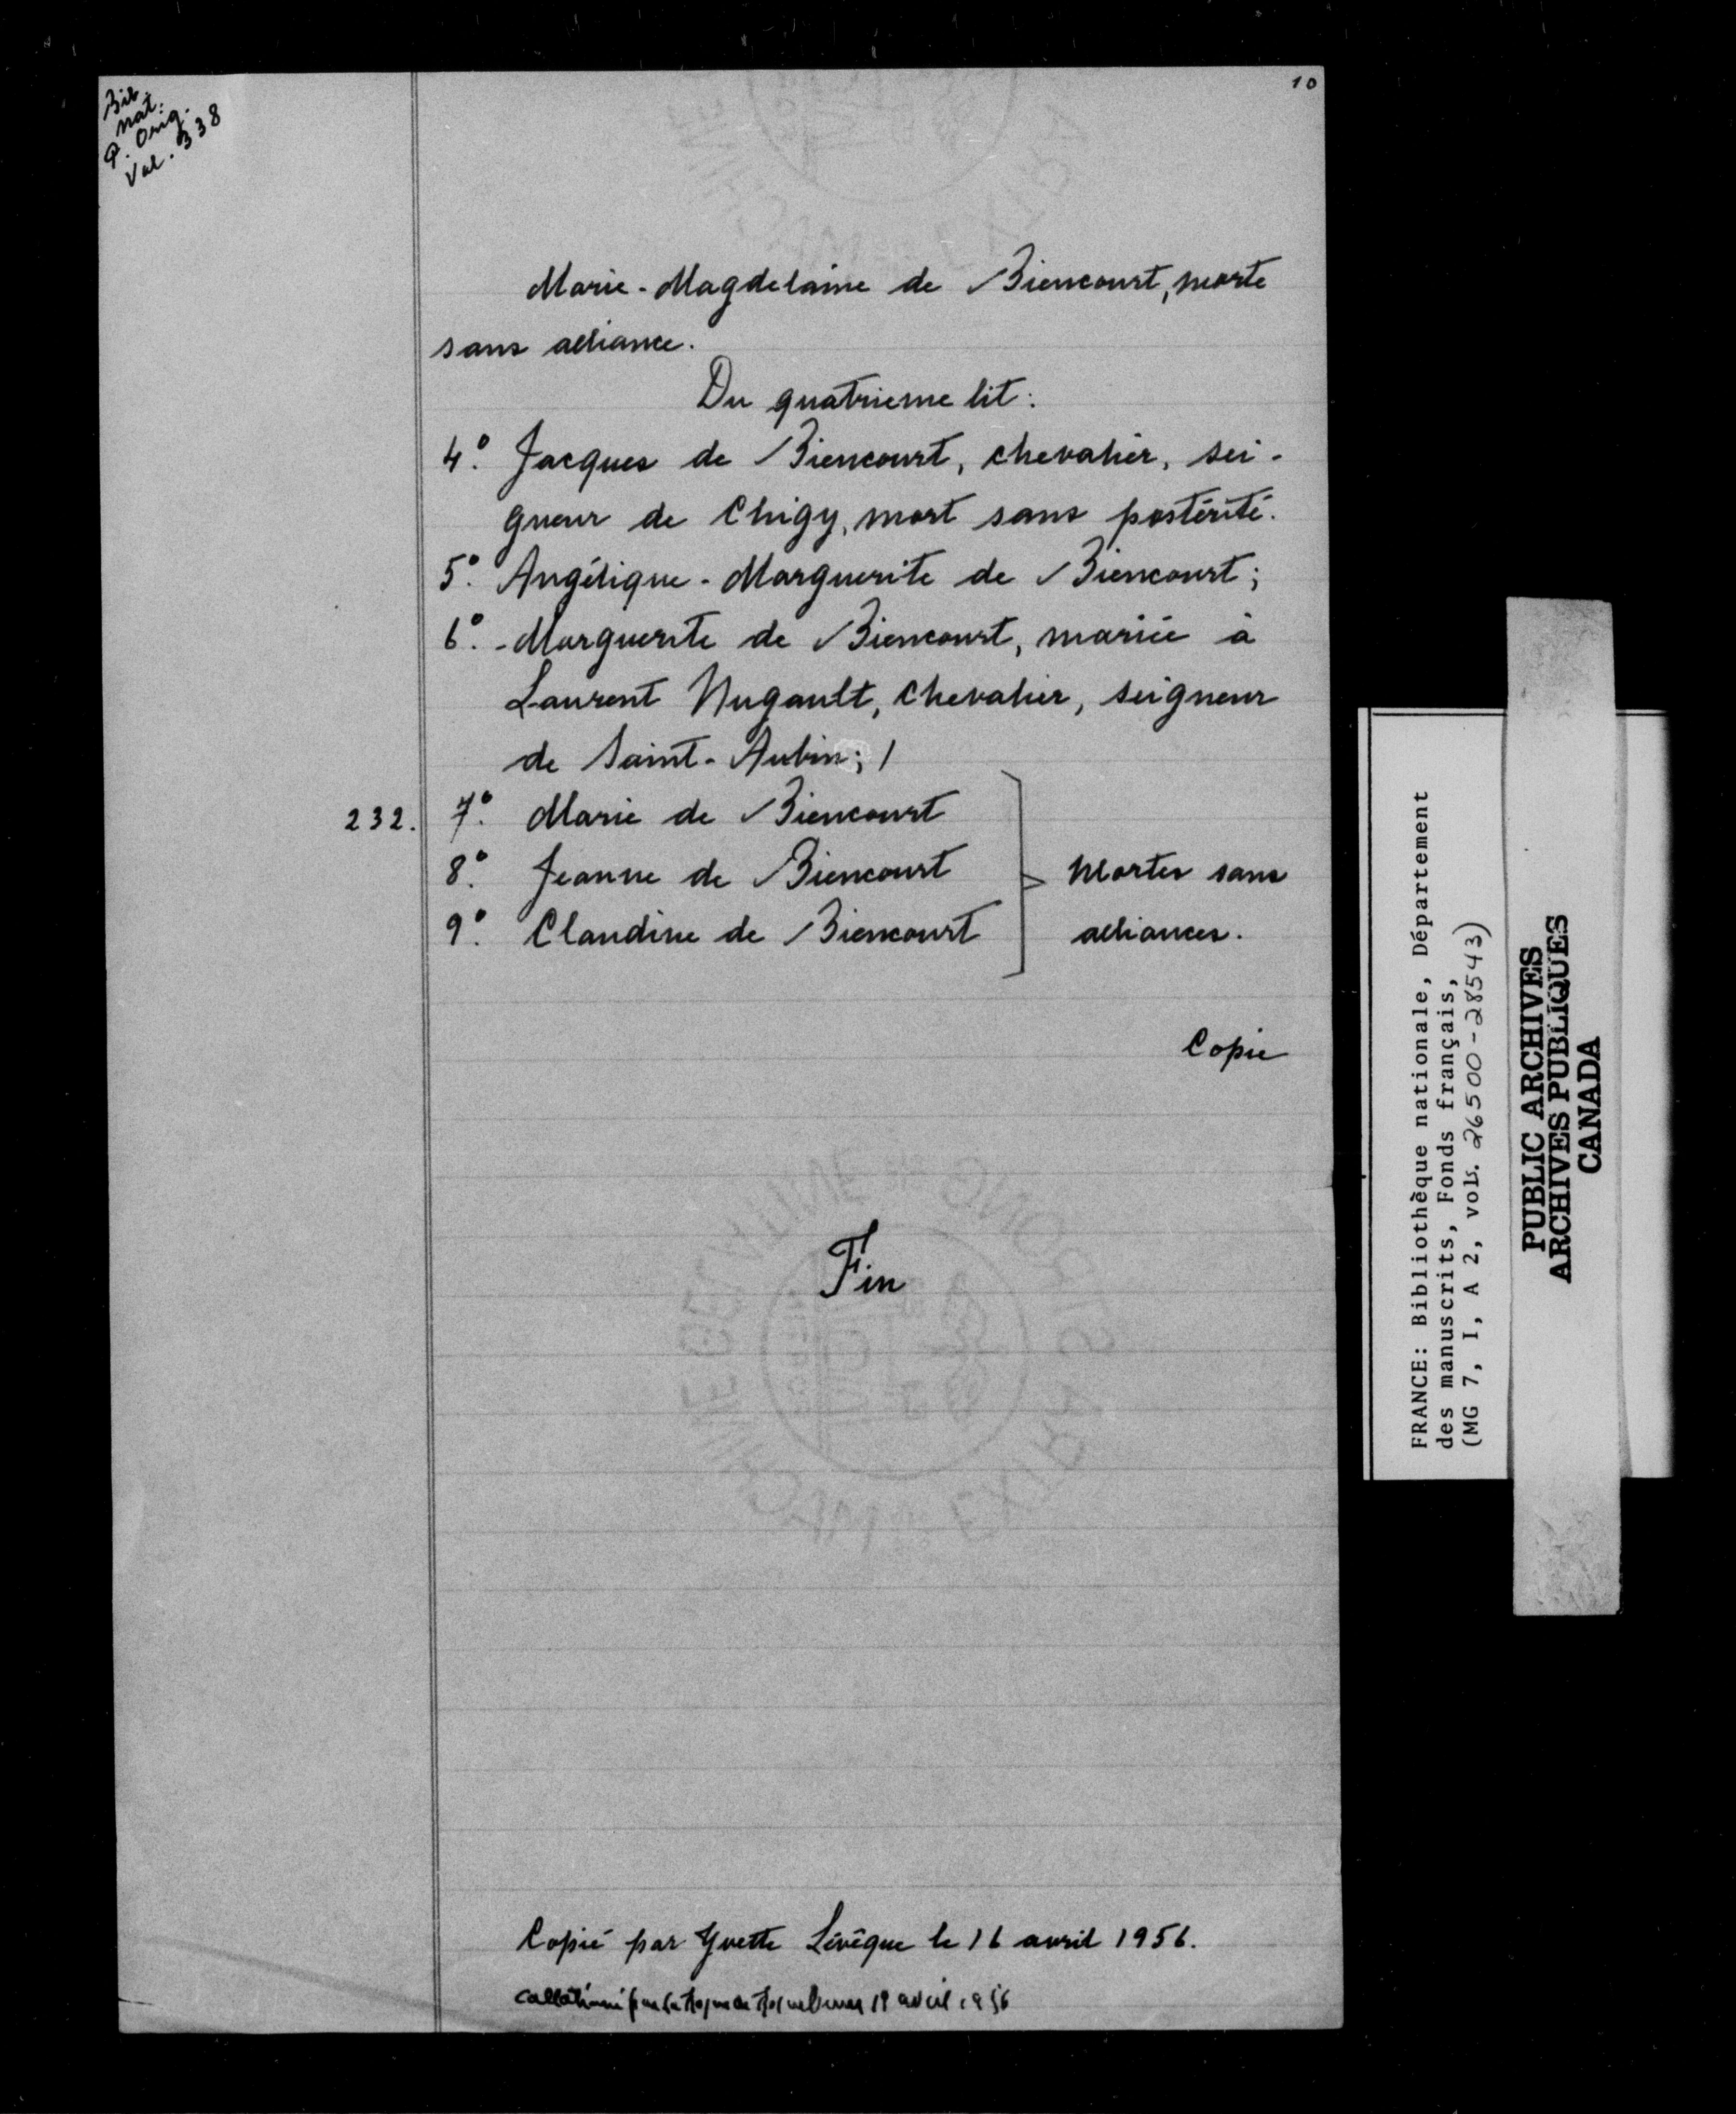 Bib.
nat.
P. Orig.
Vol. 338
10
Marie-Magdelaine de Biencourt, morte
sans alliance.
Du quatrieme lit:
4.° Jacques de Biencourt, chevalier, sei-
gneur de Chigy, mort sans postérité.
5.° Angélique-Marguerite de Biencourt;
6.° Marguerite de Biencourt, mariée à
Laurent Nugault, chevalier, seigneur
de Saint-Aubin; /
232. 7.° Marie de Biencourt
8.° Jeanne de Biencourt mortes sans
9.° Claudine de Biencourt alliances.
Copie
Fin
Copié par Yvette Lévêque le 16 avril 1956.
avril 1956
FRANCE: Bibliothèque nationale, Département
des manuscrits, Fonds français,
(MG 7, I, A 2, vols. 26500-28543)
PUBLIC ARCHIVES
ARCHIVES PUBLIQUES
CANADA